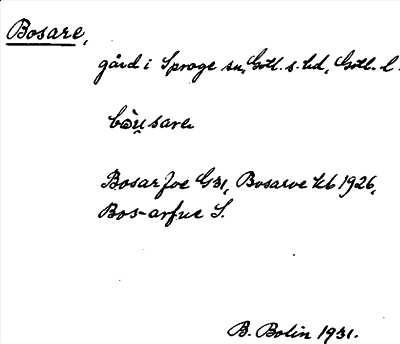 Bosare,
gård i Sproge sn, Gotl. s. hd, Gotl. l.
bòu̯sare
Bosarfve G31, Bosarve kb 1926,
Bos-arfue S.
B. Bolin 1931.